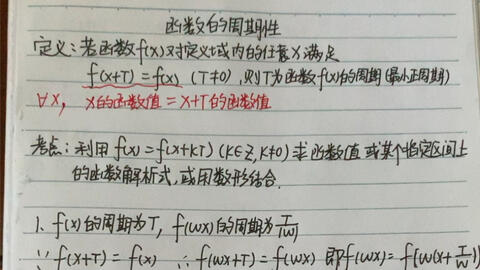 函数的周期性
定义：若函数f(x)对定义域内的任意x满足
f(x+T)=f(x) (T≠0)，则T为函数f(x)的周期(最小正周期)
∀x， x的函数值=x+T的函数值
考点：利用f(x)=f(x+kT) (k∈Z,k≠0)求函数值 或某个指定区间上
的函数解析式，或用数形结合.
1. f(x)的周期为T，f(wx)的周期为T/|w|
∵ f(x+T)=f(x) ∴ f(wx+T)=f(wx) 即f(wx)=f(w(x+T/|w|))